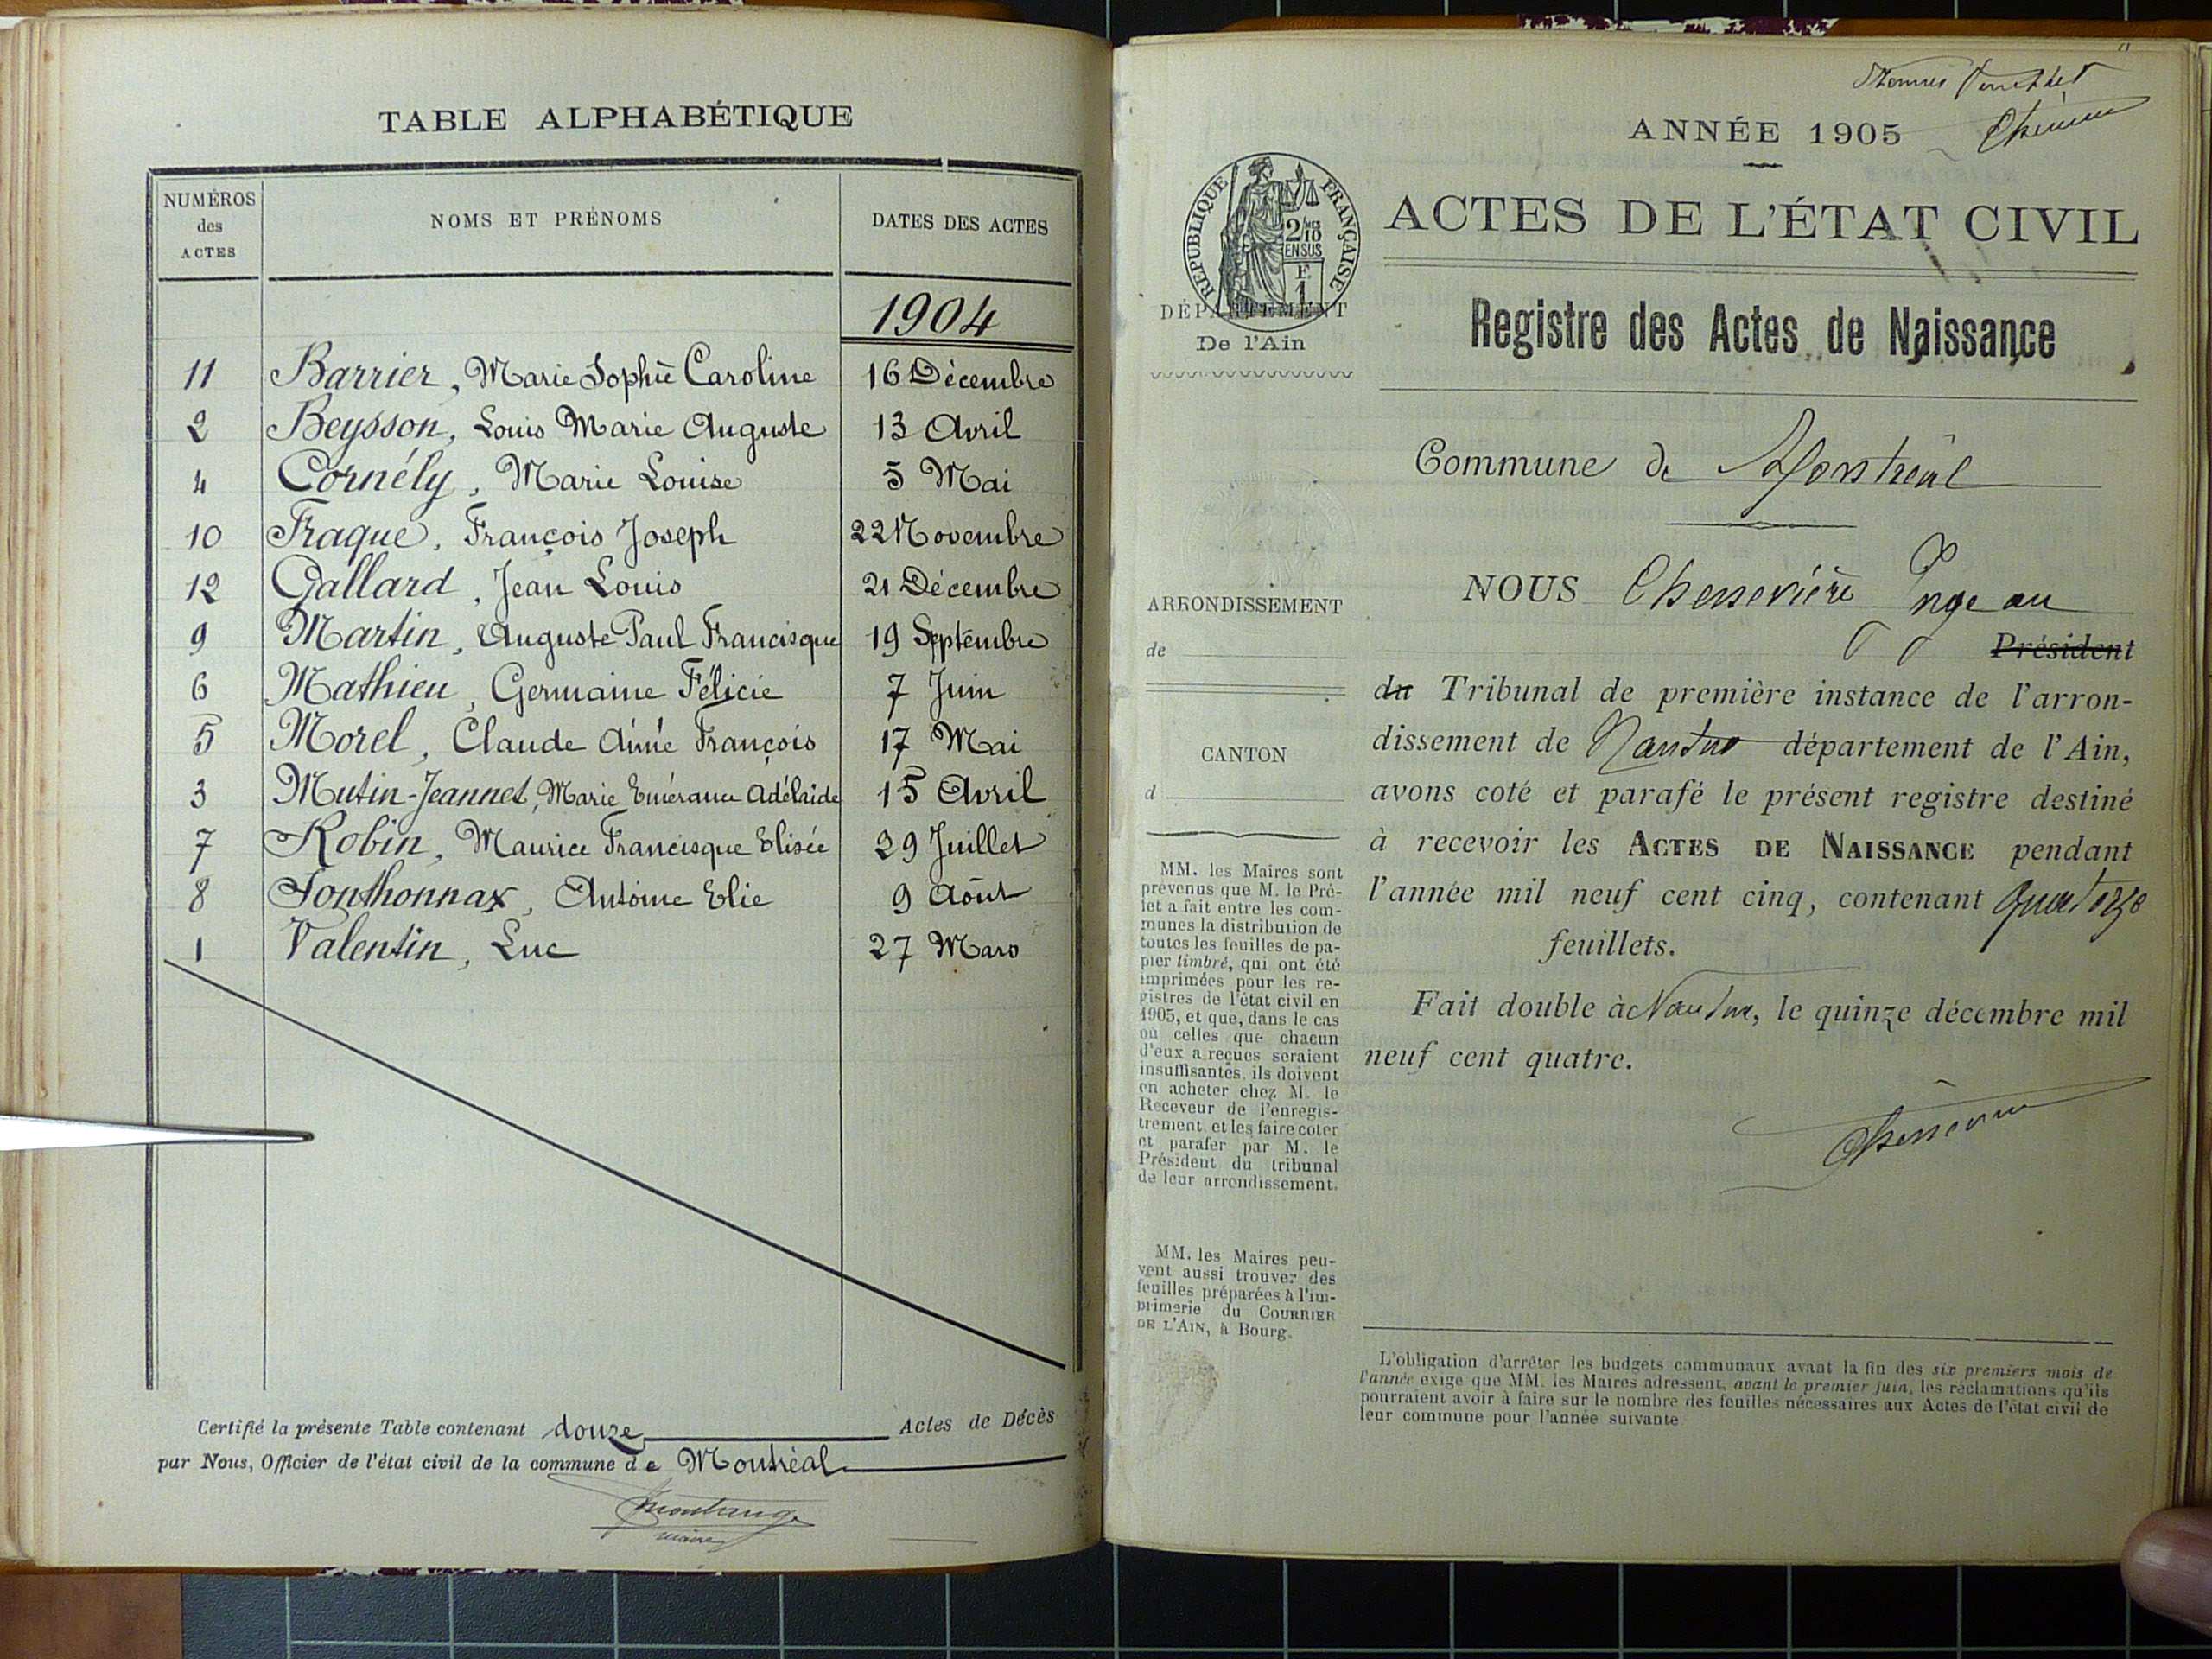 TABLE ALPHABÉTIQUE
NUMÉROS des ACTES
NOMS ET PRÉNOMS
DATES DES ACTES
1904
11 Barrier, Marie Sophie Caroline 16 Décembre
2 Beysson, Louis Marie Auguste 13 Avril
4 Cornély, Marie Louise 5 Mai
10 Fraque, François Joseph 22 Novembre
12 Gallard, Jean Louis 21 Décembre
9 Martin, Auguste Paul Francisque 19 Septembre
6 Mathieu, Germaine Félicie 7 Juin
5 Morel, Claude Aimé François 17 Mai
3 Mutin-Jeannet, Marie Emérance Adélaïde 15 Avril
7 Robin, Maurice Francisque Elisée 29 Juillet
8 Sonthonnax, Antoine Elie 9 Août
1 Valentin, Luc 27 Mars
Certifié la présente Table contenant douze Actes de Décès
par Nous, Officier de l'état civil de la commune de Montréal
maire
ANNÉE 1905
RÉPUBLIQUE FRANÇAISE
2/10 EN SUS
F. 1
ACTES DE L'ÉTAT CIVIL
DÉPARTEMENT
De l'Ain
Registre des Actes de Naissance
Commune de Montréal
ARRONDISSEMENT
de
CANTON
d
MM. les Maires sont
prévenus que M. le Pré-
fet a fait entre les com-
munes la distribution de
toutes les feuilles de pa-
pier timbré, qui ont été
imprimées pour les re-
gistres de l'état civil en
1905, et que, dans le cas
où celles que chacun
d'eux a reçues seraient
insuffisantes, ils doivent
en acheter chez M. le
Receveur de l'enregis-
trement, et les faire coter
et parafer par M. le
Président du tribunal
de leur arrondissement.
MM. les Maires peu-
vent aussi trouver des
feuilles préparées à l'im-
primerie du COURRIER
DE L'AIN, à Bourg.
NOUS Chenevière Juge au
Président
du Tribunal de première instance de l'arron-
dissement de Nantua département de l'Ain,
avons coté et parafé le présent registre destiné
à recevoir les ACTES DE NAISSANCE pendant
l'année mil neuf cent cinq, contenant quatorze
feuillets.
Fait double à Nantua, le quinze décembre mil
neuf cent quatre.
L'obligation d'arrêter les budgets communaux avant la fin des six premiers mois de
l'année exige que MM. les Maires adressent, avant le premier juin, les réclamations qu'ils
pourraient avoir à faire sur le nombre des feuilles nécessaires aux Actes de l'état civil de
leur commune pour l'année suivante